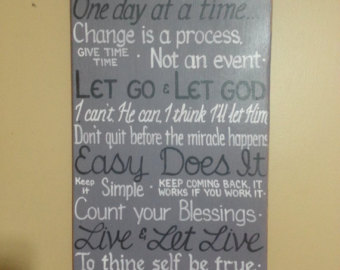 One day at a time...
Change is a process.
GIVE TIME TIME · Not an event·
LET GO & LET GOD
I can't, He can, I think I'll let Him
Don't quit before the miracle happens
Easy Does It
Keep It Simple · KEEP COMING BACK, IT WORKS IF YOU WORK IT
Count your Blessings·
Live & Let Live
To thine self be true·